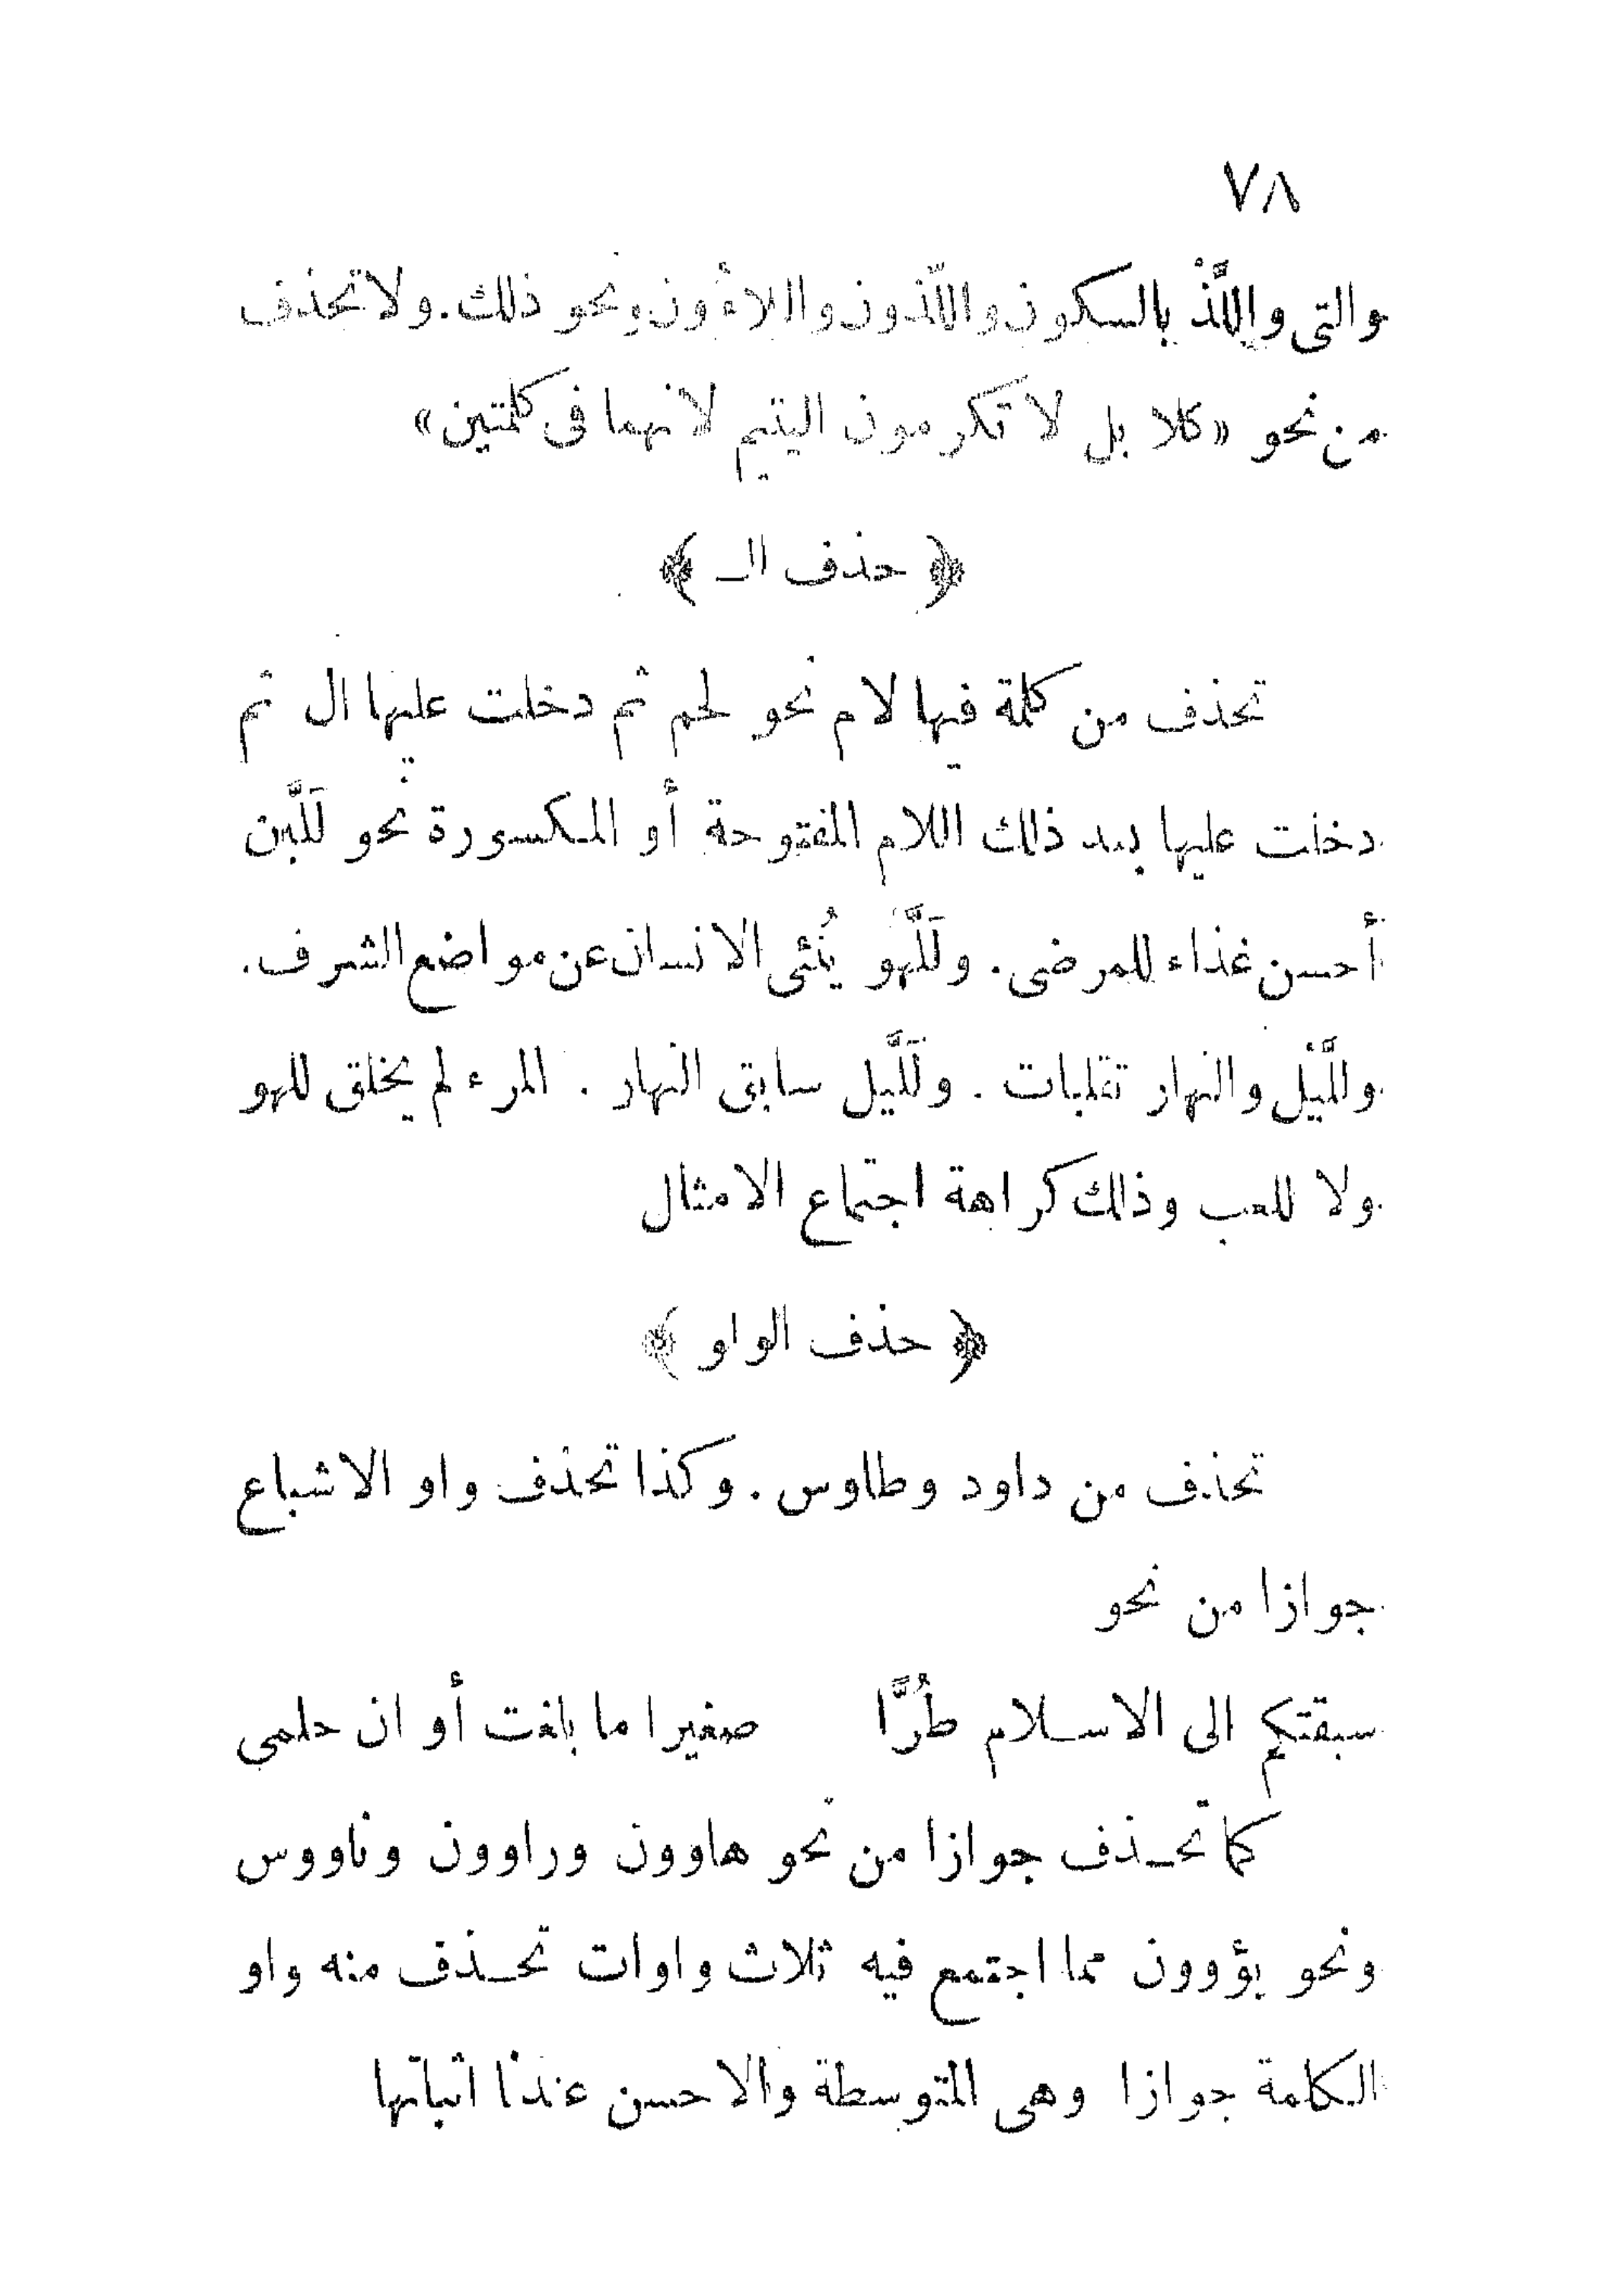 ٧٨
والتى واللَّذْ بالسكون واللّذون واللاءون ونحو ذلك. ولا تحذف
من نحو «كلا بل لا تكرمون اليتيم لانهما فى كلمتين»
﴿ حذف الـ ﴾
تحذف من كلمة فيها لام نحو لحم ثم دخلت عليها ال ثم
دخلت عليها بعد ذلك اللام المفتوحة أو المكسورة نحو لَلَّبن
أحسن غذاء للمرضى. ولَلَّهو يُنئى الانسان عن مواضع الشرف.
وللَّيْل والنهار تقلبات. ولَلَّيل سابق النهار. المرء لم يخلق للهو
ولا للعب وذلك كراهة اجتماع الامثال
﴿ حذف الواو ﴾
تحذف من داود وطاوس. وكذا تحذف واو الاشباع
جوازا من نحو
سبقتكم الى الاسـلام طُرًّا صغيرا ما بلغت أوان حلمى
كما تحـذف جوازا من نحو هاوون وراوون وناووس
ونحو يؤوون مما اجتمع فيه ثلاث واوات تحـذف منه واو
الكلمة جوازا وهى المتوسطة والاحسن عندنا اثباتها